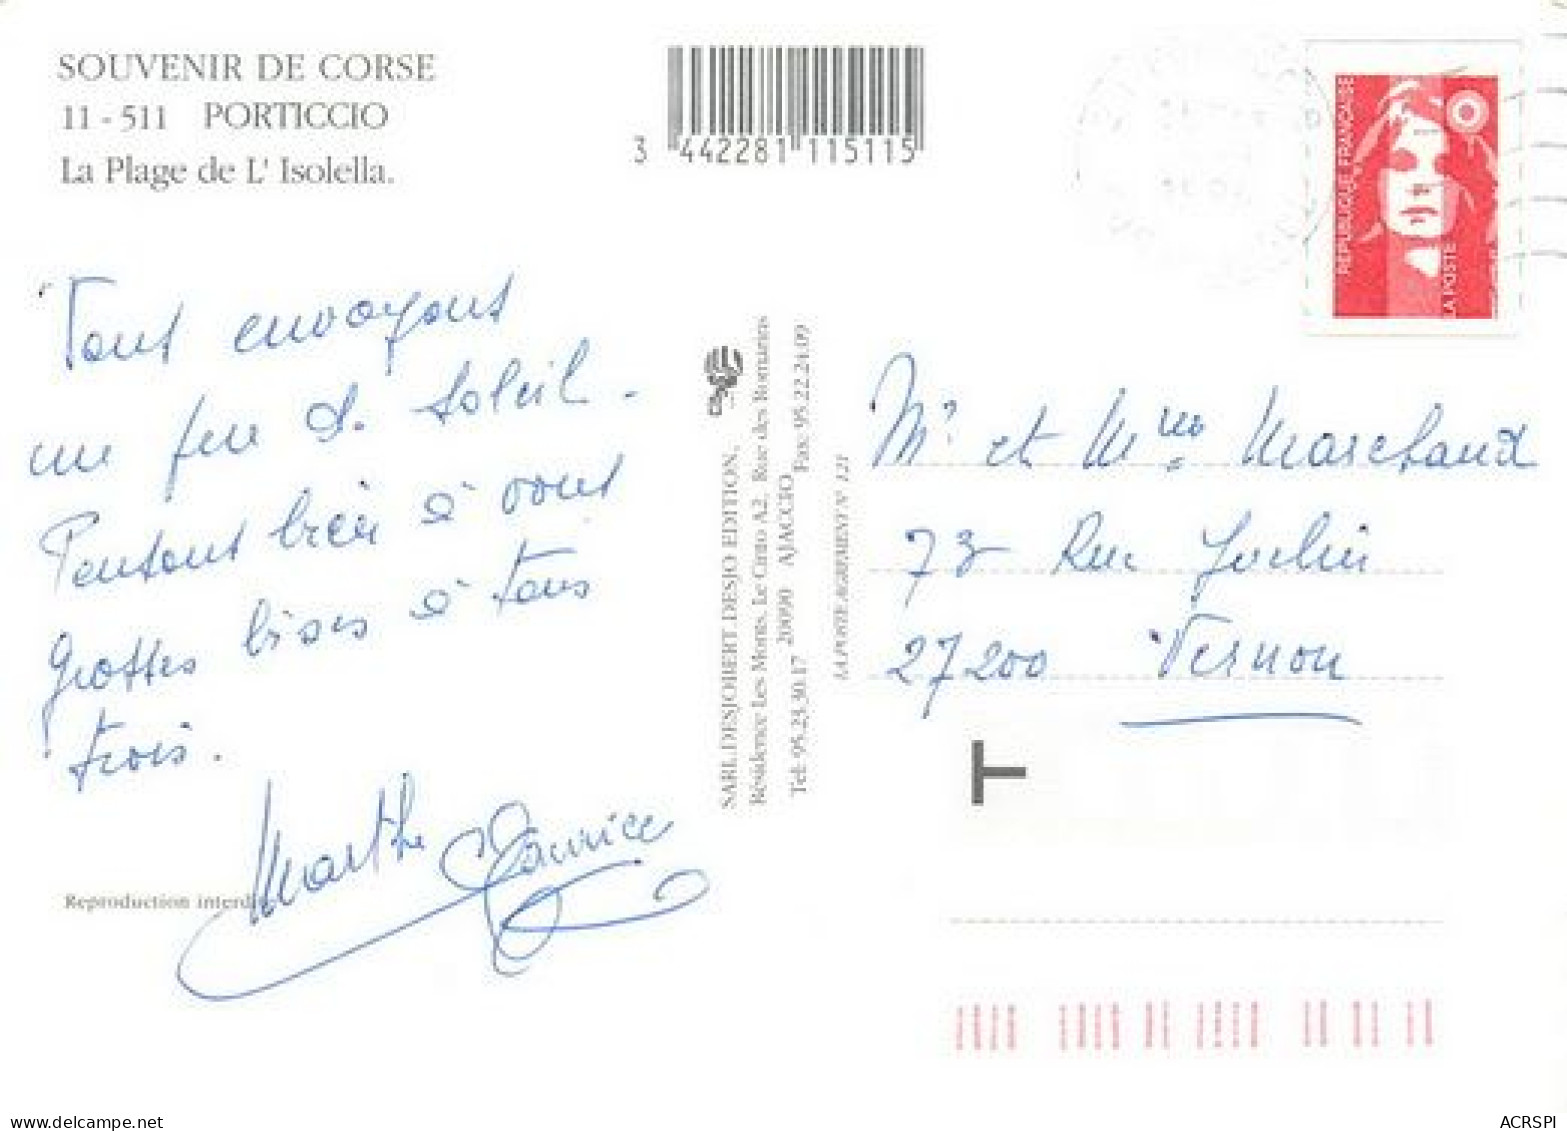 SOUVENIR DE CORSE
11 - 511 PORTICCIO
La Plage de L' Isolella.
3 442281 115115
REPUBLIQUE FRANÇAISE
LA POSTE
Vous envoyons
un peu de soleil.
Pensons bien à vous
grosses bises à tous
trois.
Marthe Maurice
Reproduction interdite
SARL.DESJOBERT DESJO EDITION.
Résidence Les Monts. Le Cinto A2. Rue des Romarins
20090 AJACCIO
Tel: 95.23.30.17 Fax: 95.22.24.09
LA POSTE AGREMENT N° 121
Mr et Mme Marchand
73 Rue
27200 Vernon
T
www.delcampe.net
ACRSPI